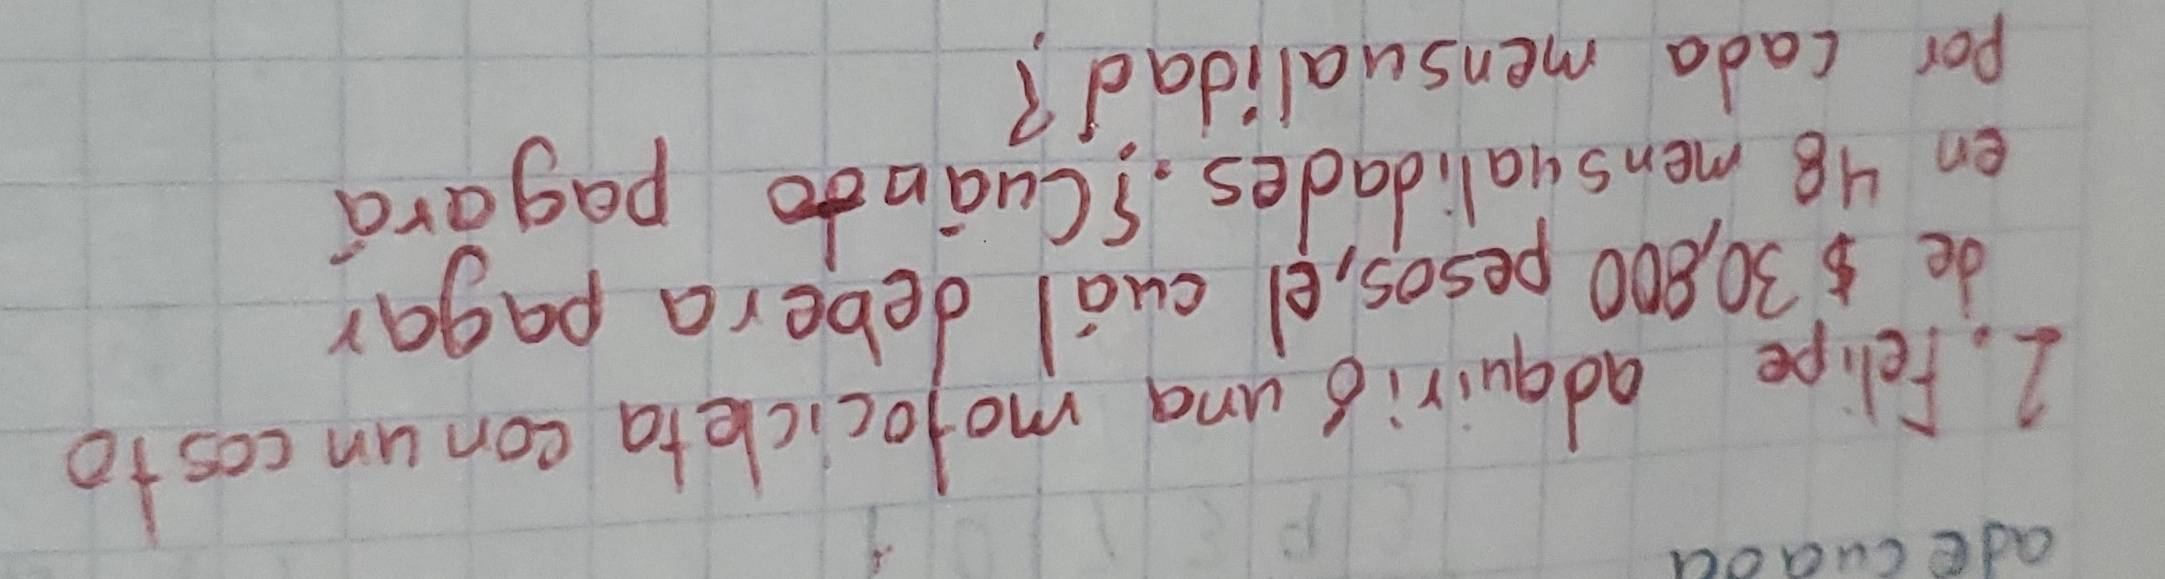 adecuada
2. Felipe adquirió una motocicleta con un costo
de $ 30,800 pesos, el cuál debera pagar
en 48 mensualidades. ¿Cuánto pagará
por cada mensualidad?